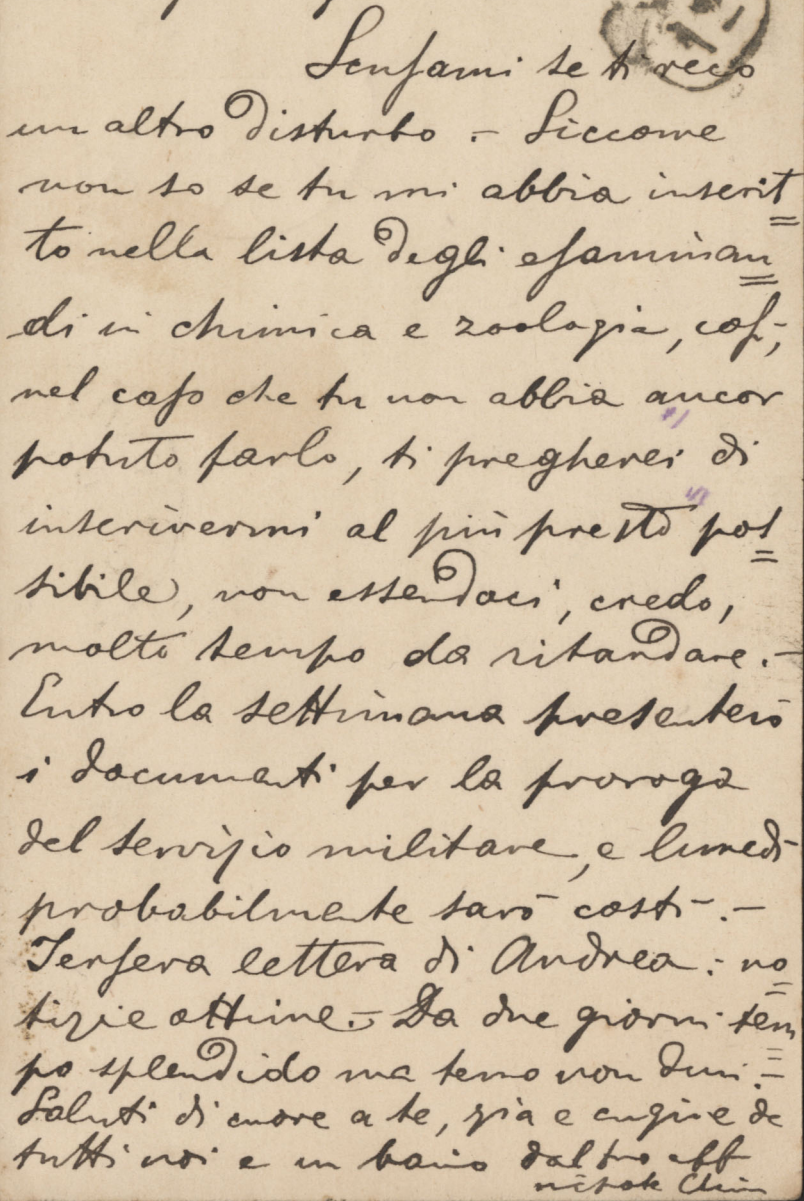 Scusami se ti reco
un altro disturbo. - Siccome
non so se tu mi abbia inserit=
to nella lista degli esaminan=
di in chimica e zoologia, così,
nel caso che tu non abbia ancor
potuto farlo, ti pregherei di
inscrivermi al più presto pos=
sibile, non essendoci, credo,
molto tempo da ritardare. -
Entro la settimana presenterò
i documenti per la proroga
del servizio militare, e lunedì
probabilmente sarò costì. -
Iersera lettera di Andrea: no=
tizie ottime. - Da due giorni tem=
po splendido ma temo non duri. -
Saluti di cuore a te, zia e cugine da
tutti noi e un bacio dal tuo aff